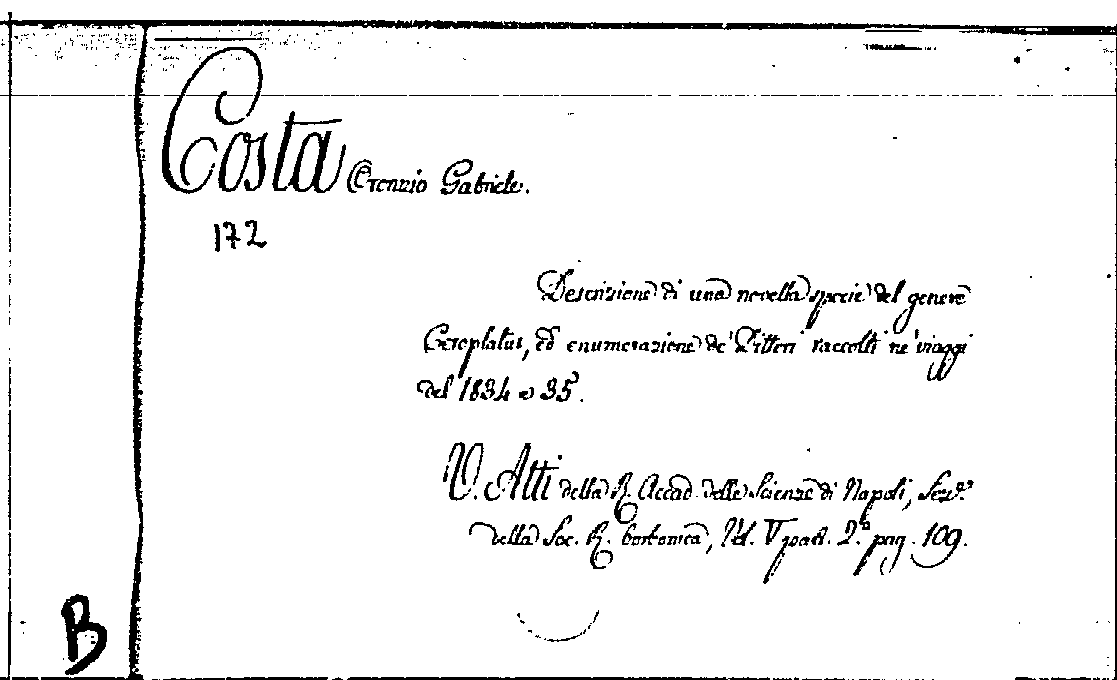 Costa Oronzio Gabriele.
172
Descrizione di una novella specie del genere
Ceroplatus, ed enumerazione de' Ditteri raccolti ne' viaggi
del 1834 e 35.
V. Atti della R. Accad. delle Scienze di Napoli, Sezne
della Soc. R. borbonica, Vol. V part. 2.a pag. 109.
B